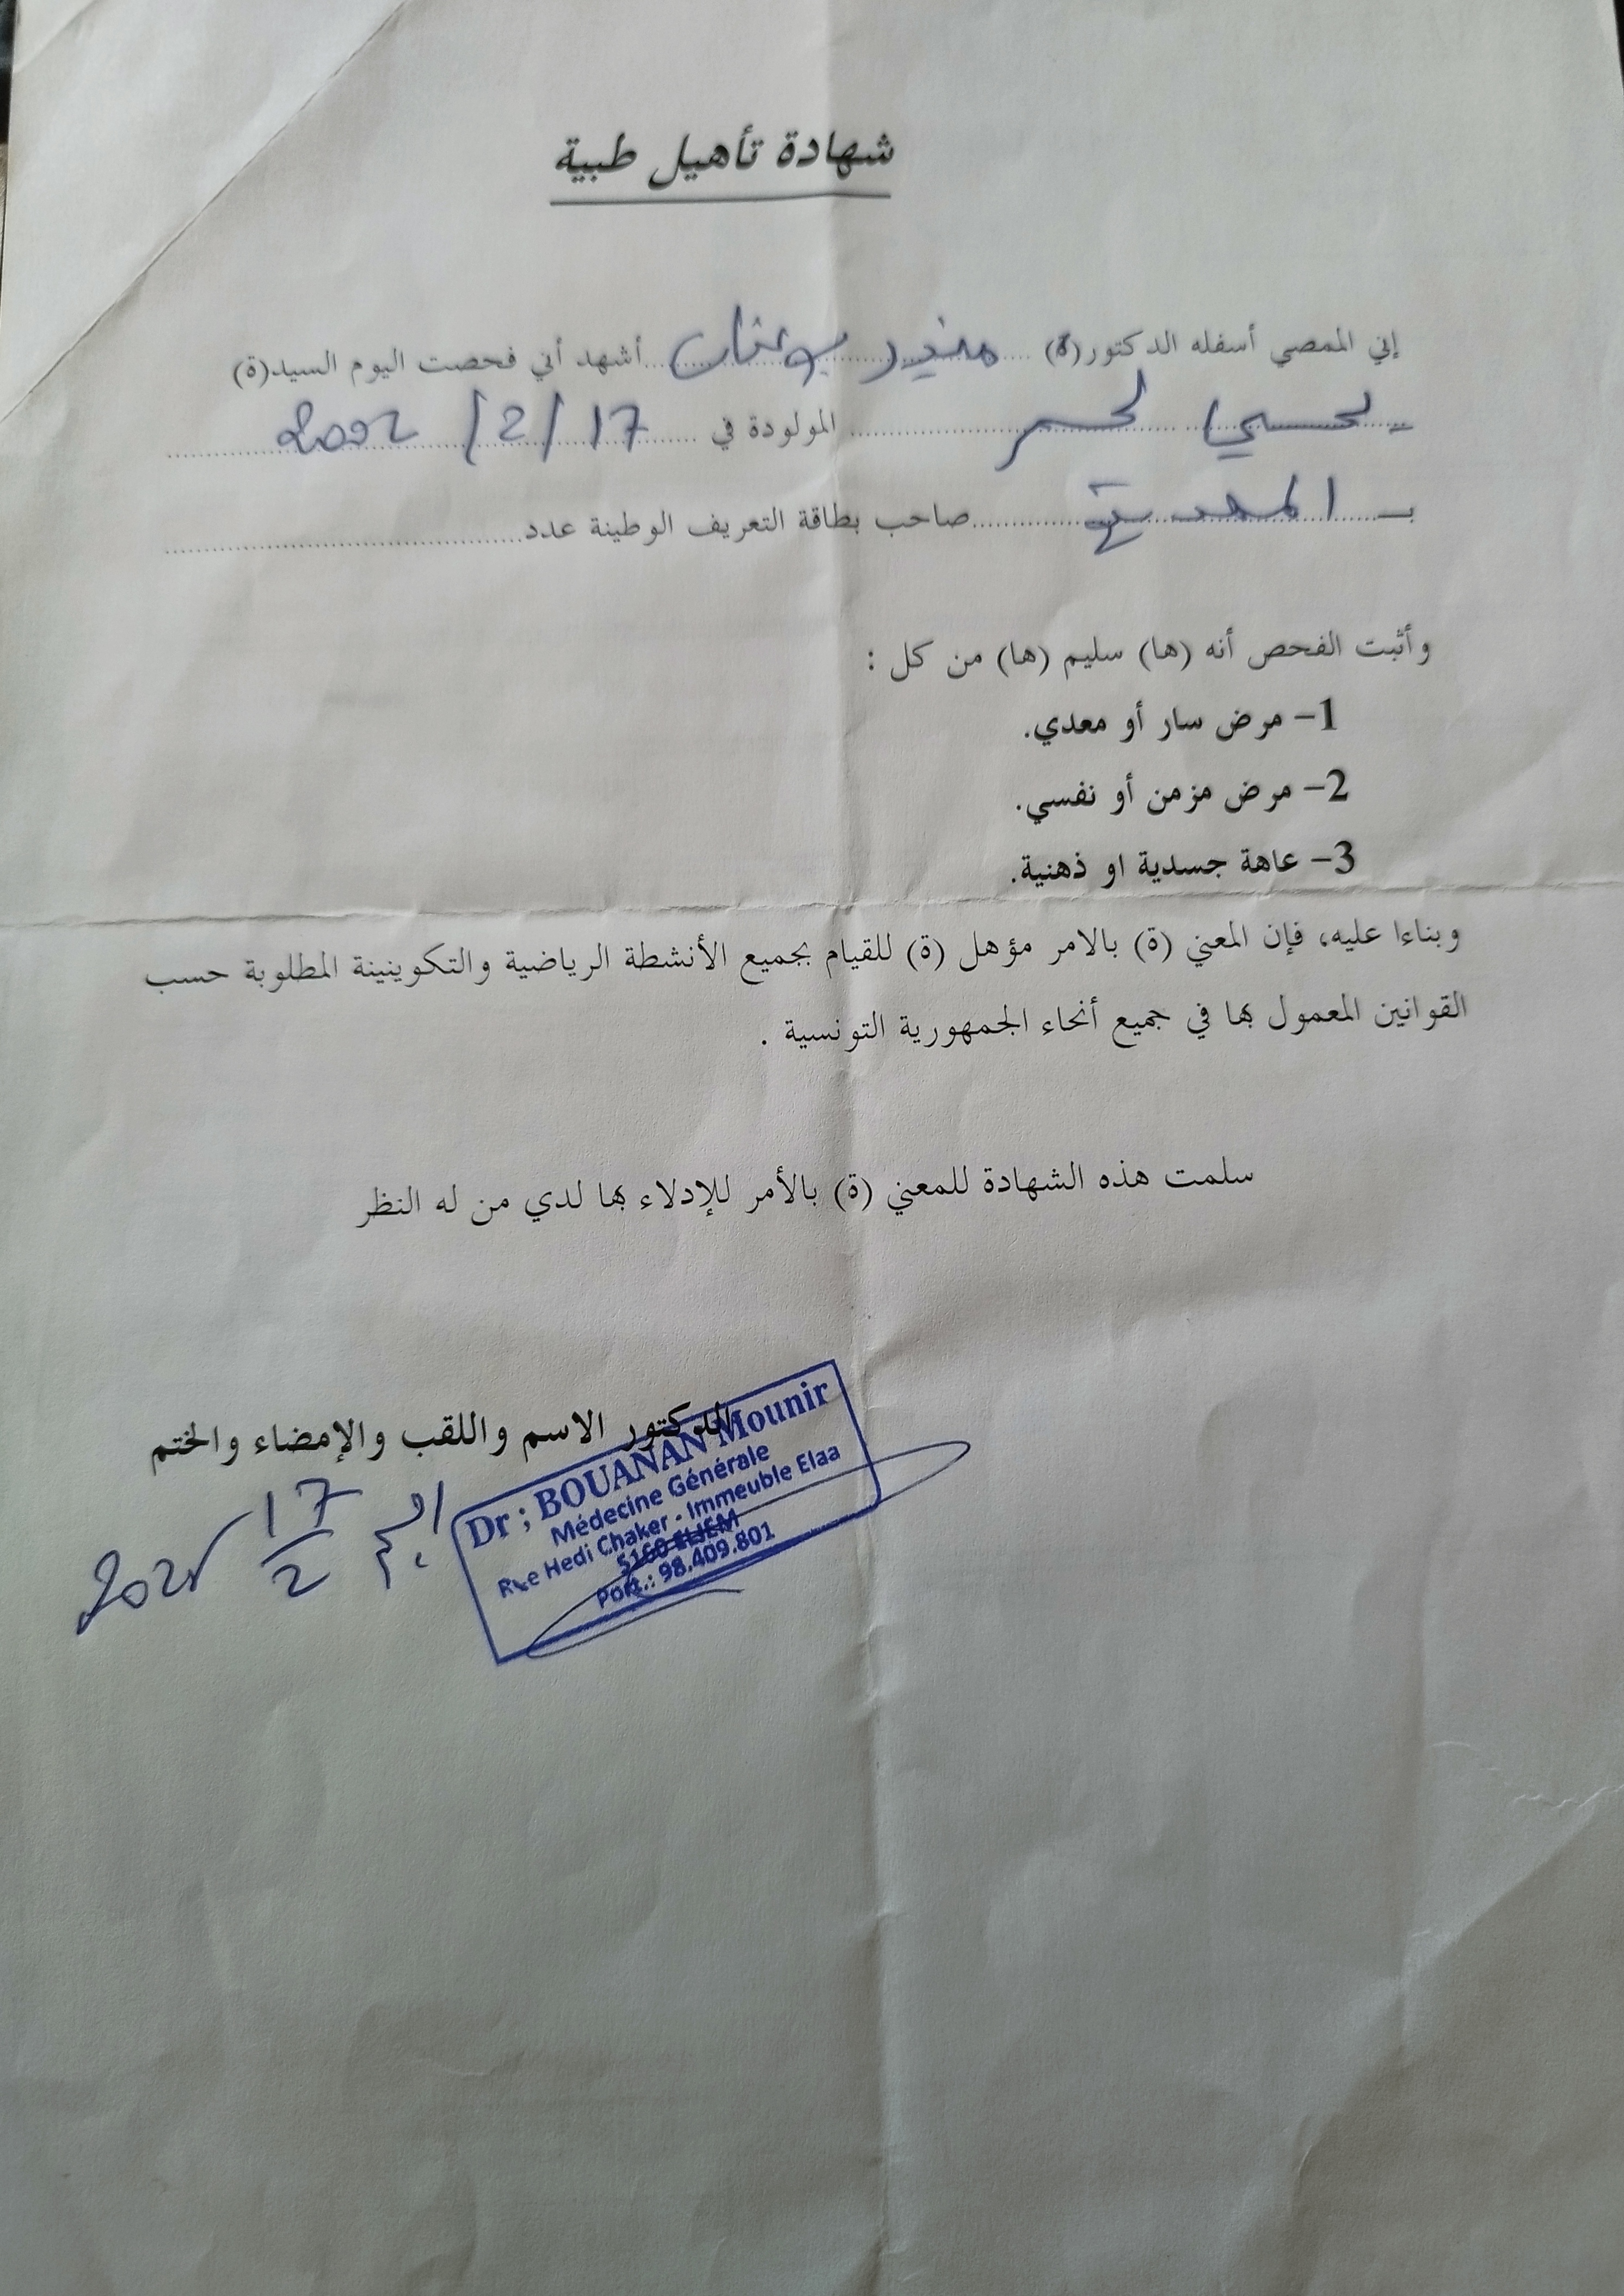 شهادة تأهيل طبية
إني الممصي أسفله الدكتور(ة) منير بوعنان أشهد أني فحصت اليوم السيد(ة)
المولودة في 17/2/2002
بـ المهدية صاحب بطاقة التعريف الوطينة عدد
وأثبت الفحص أنه (ها) سليم (ها) من كل :
1- مرض سار أو معدي.
2- مرض مزمن أو نفسي.
3- عاهة جسدية او ذهنية.
وبناءا عليه، فإن المعني (ة) بالامر مؤهل (ة) للقيام بجميع الأنشطة الرياضية والتكوينينة المطلوبة حسب
القوانين المعمول بها في جميع أنحاء الجمهورية التونسية .
سلمت هذه الشهادة للمعني (ة) بالأمر للإدلاء بها لدي من له النظر
الدكتور الاسم واللقب والإمضاء والختم
Dr ; BOUANAN Mounir
Médecine Générale
Rue Hedi Chaker - Immeuble Elaa
5160 ELJEM
Port.: 98.409.801
الجم 17/2